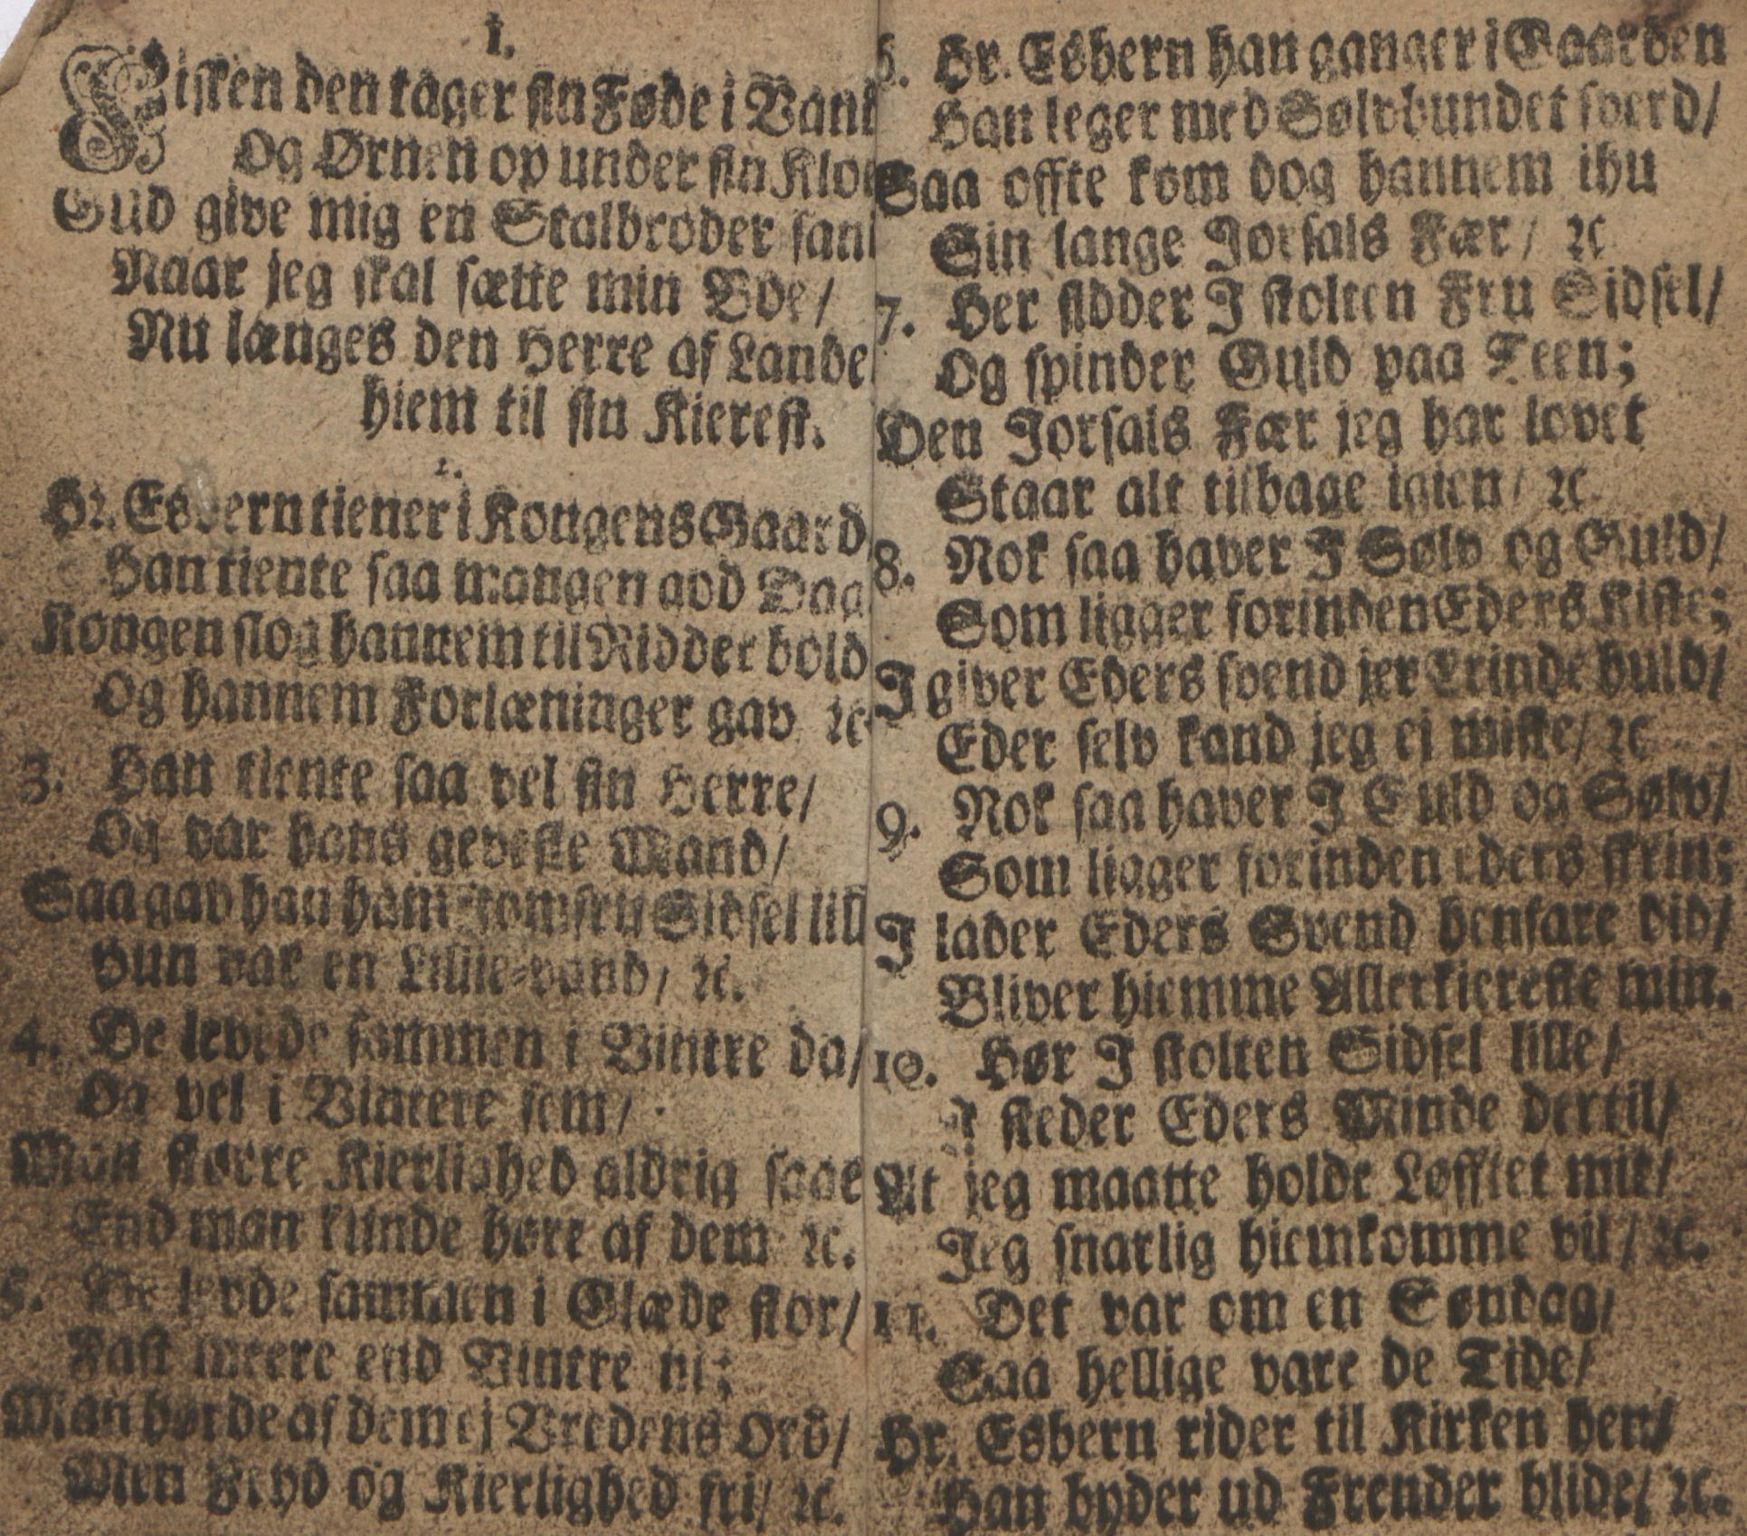 1.
Fisken den tager sin Føde i Vand
Og Ørnen op under sin
Gud give mig en Stalbroder
Naar jeg skal sætte min Boe/
Nu længes den Herre af Lande
hiem til sin Kierest.
2.
Hr. Esbern tiener i Kongens Gaard
Han tiente saa mangen god Dag
Kongen slog hannem til Ridder bold
Og hannem Forlæninger gav ꝛc
3. Han tiente saa vel sin Herre/
Og var hans geveste Mand/
Saa gav han ham Sidsel
Hun var en Lilie-vand/ ꝛc.
4. De levede sammen i Vintre da/
Og vel i Vintere fem/
Man større Kierlighed aldrig saae
End man kunde høre af dem ꝛc.
5. De levde sammen i Glæde stor/
Fast meere end Vintre ni;
Man hørde af dem ej Vredens Ord/
Men Fryd og Kierlighed fri/ ꝛc.
6. Hr. Esbern han ganger i Gaarden
Han leger med Sølvbundet sverd/
Saa offte kom dog hannem ihu
Sin lange Jorsals Fær/ ꝛc
7. Her sidder I stolten Fru Sidsel/
Og spinder Guld paa Teen;
Den Jorsals Fær jeg har lovet
Staar alt tilbage igien/ ꝛc.
8. Nok saa haver I Sølv og Guld/
Som ligger forinden Eders Kiste;
I giver Eders svend jer Erinde huld/
Eder selv kand jeg ei miste/ ꝛc
9. Nok saa haver I Guld og Sølv/
Som ligger forinden eders skrin;
I lader Eders Svend henfare did/
Bliver hiemme Allerkiereste min.
10. Hør I stolten Sidsel lille/
I steder Eders Minde dertil/
At jeg maatte holde Løfftet mit/
Jeg snarlig hiemkomme vil/ ꝛc.
11. Det var om en Søndag/
Saa hellige vare de Tide/
Hr. Esbern rider til Kirken hen/
Han byder ud Frender blide/ ꝛc.